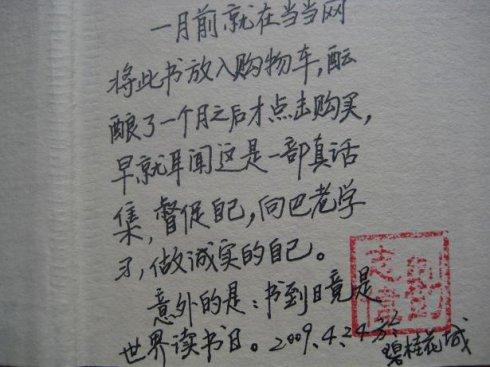 一月前就在当当网
将此书放入购物车，酝
酿了一个月之后才点击购买，
早就耳闻这是一部真话
集，督促自己，向巴老学
习，做诚实的自己。
意外的是：书到日竟是
世界读书日。2009.4.24于
碧桂花城